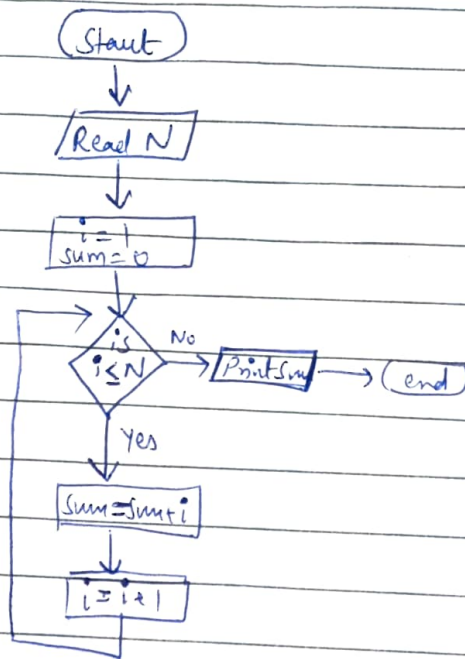 Start
Read N
i = 1
sum = 0
is
i ≤ N
No
Print Sum
end
Yes
Sum = Sum + i
i = i + 1